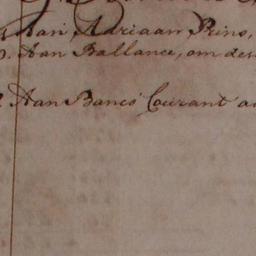 Aan Adriaan Prins,
Aan Ballance, om des
Aan Banco Courant a